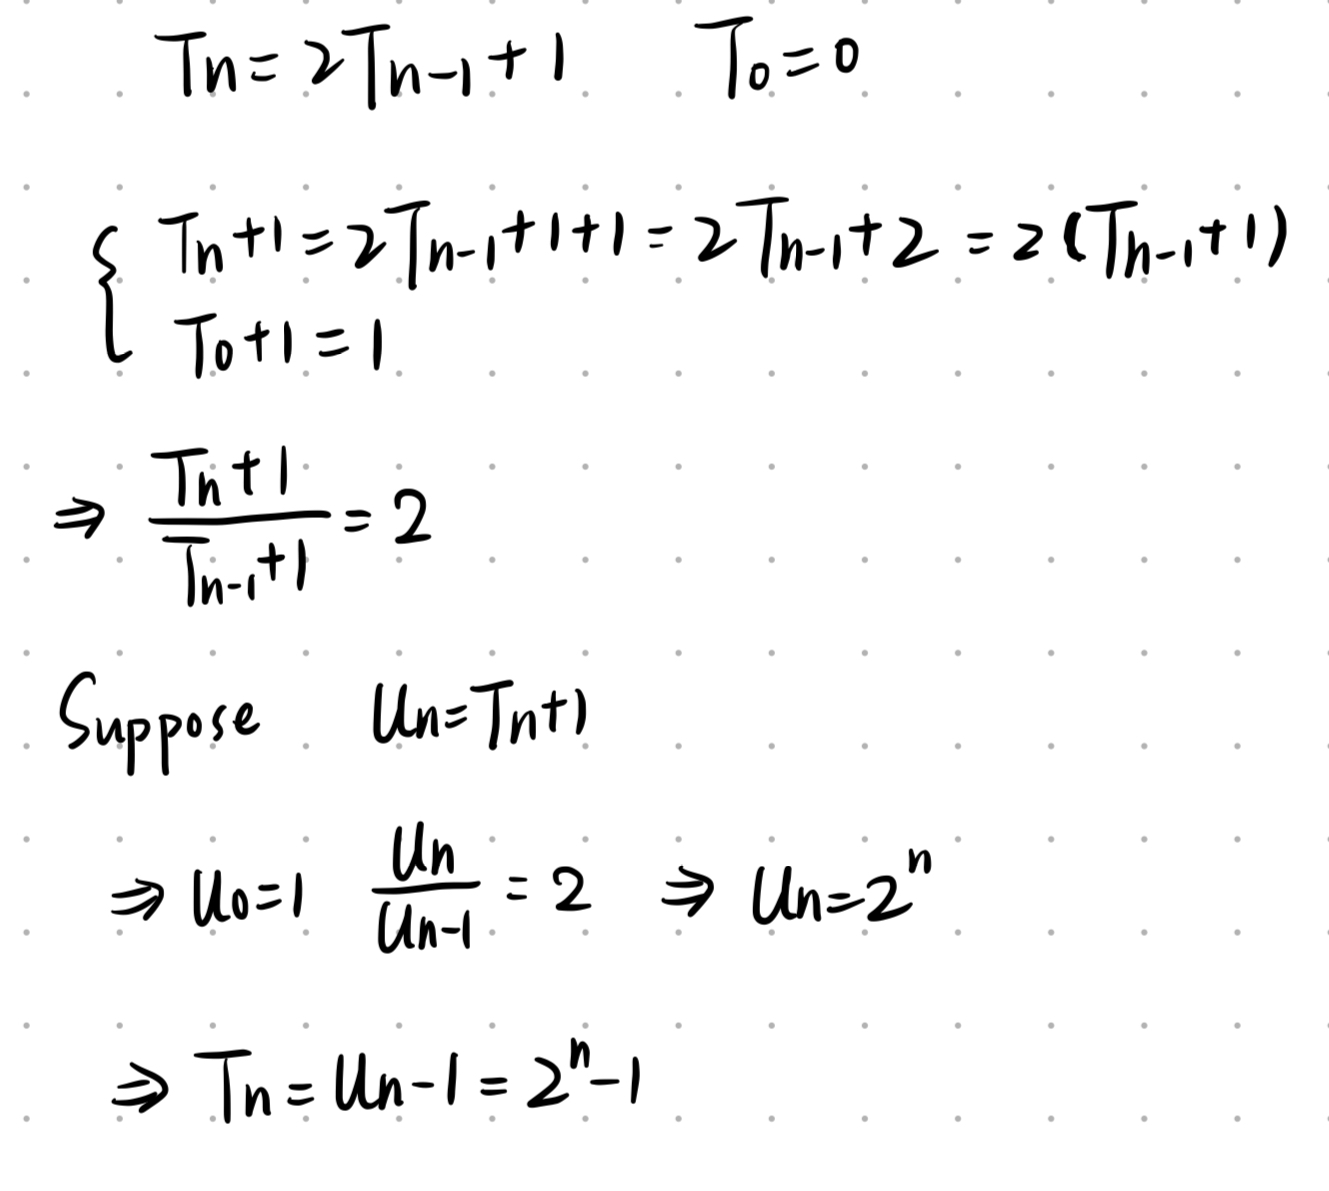 Tn = 2Tn-1 + 1 T0 = 0
{ Tn+1 = 2Tn-1+1+1 = 2Tn-1+2 = 2(Tn-1+1)
T0+1 = 1
⇒ (Tn+1)/(Tn-1+1) = 2
Suppose Un=Tn+1
⇒ U0=1 Un/Un-1 = 2 ⇒ Un=2^n
⇒ Tn = Un-1 = 2^n-1